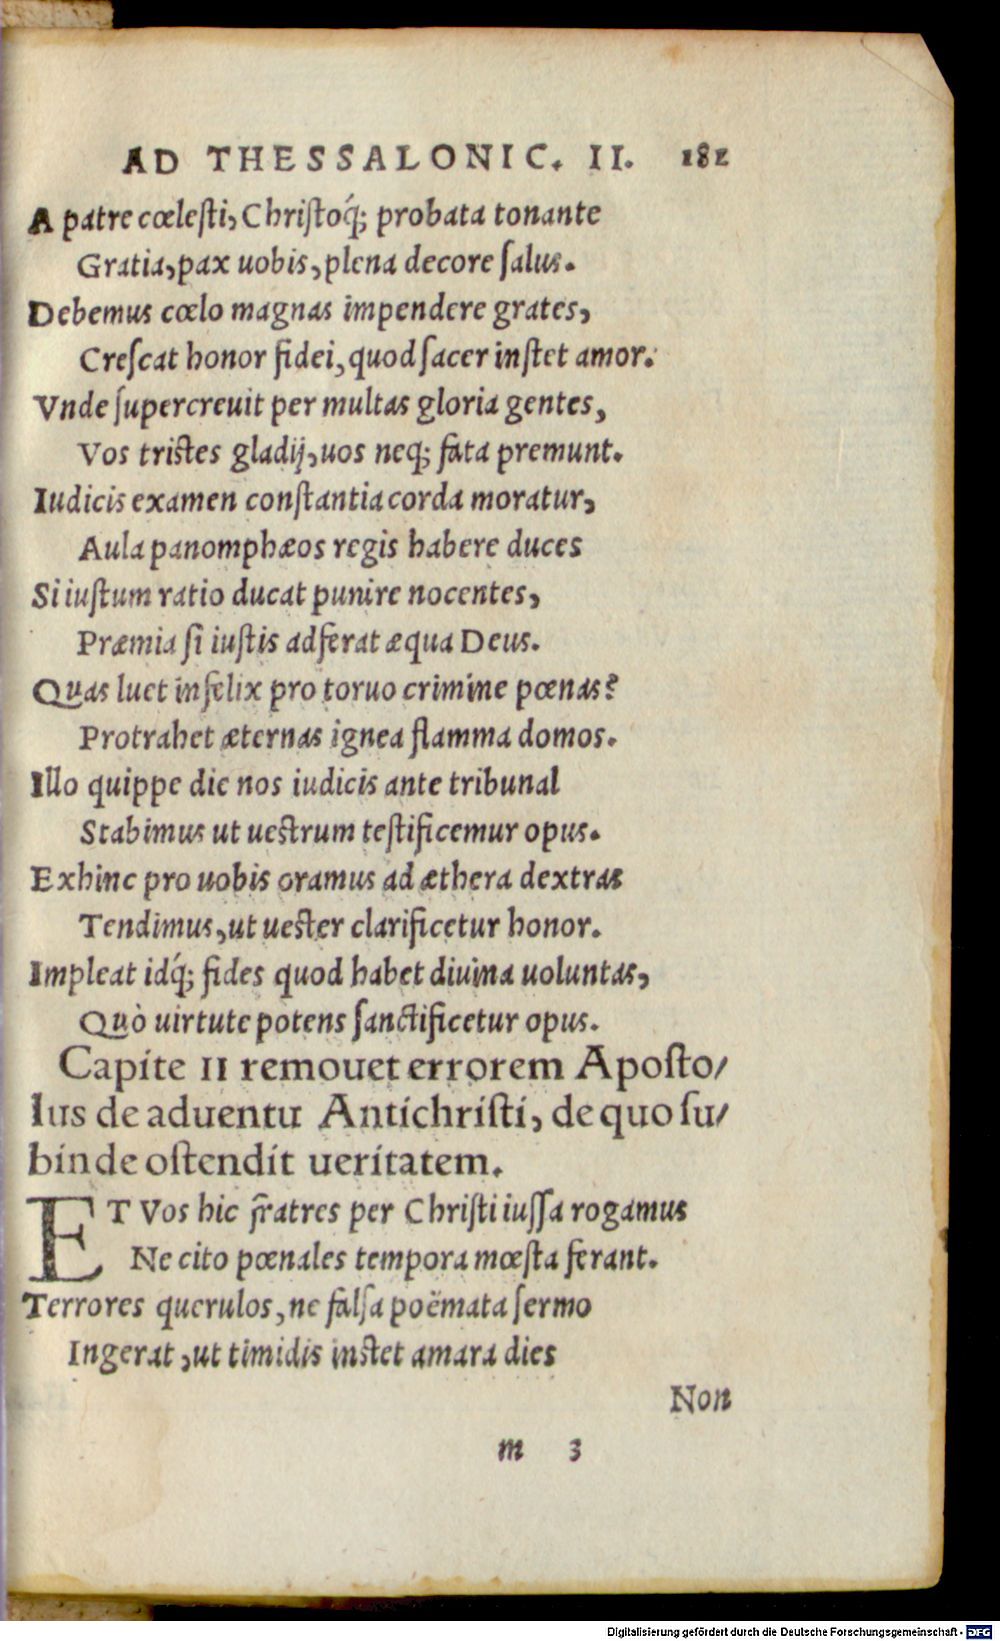 AD THESSALONIC. II. 181
A patre cœlesti, Christoq́; probata tonante
Gratia, pax uobis, plena decore salus.
Debemus cœlo magnas impendere grates,
Crescat honor fidei, quod sacer instet amor.
Vnde supercreuit per multas gloria gentes,
Vos tristes gladij, uos neq; fata premunt.
Iudicis examen constantia corda moratur,
Aula panomphæos regis habere duces
Si iustum ratio ducat punire nocentes,
Præmia si iustis adferat æqua Deus.
Quas luet infelix pro toruo crimine pœnas?
Protrahet æternas ignea flamma domos.
Illo quippe die nos iudicis ante tribunal
Stabimus ut uestrum testificemur opus.
Exhinc pro uobis oramus ad æthera dextras
Tendimus, ut uester clarificetur honor.
Impleat idq́; fides quod habet diuina uoluntas,
Quò uirtute potens sanctificetur opus.
Capite II remouet errorem Aposto/
lus de aduentu Antichristi, de quo su/
binde ostendit ueritatem.
ET Vos hic fratres per Christi iussa rogamus
Ne cito pœnales tempora mœsta ferant.
Terrores querulos, ne falsa poëmata sermo
Ingerat, ut timidis instet amara dies
Non
m 3
Digitalisierung gefördert durch die Deutsche Forschungsgemeinschaft - DFG